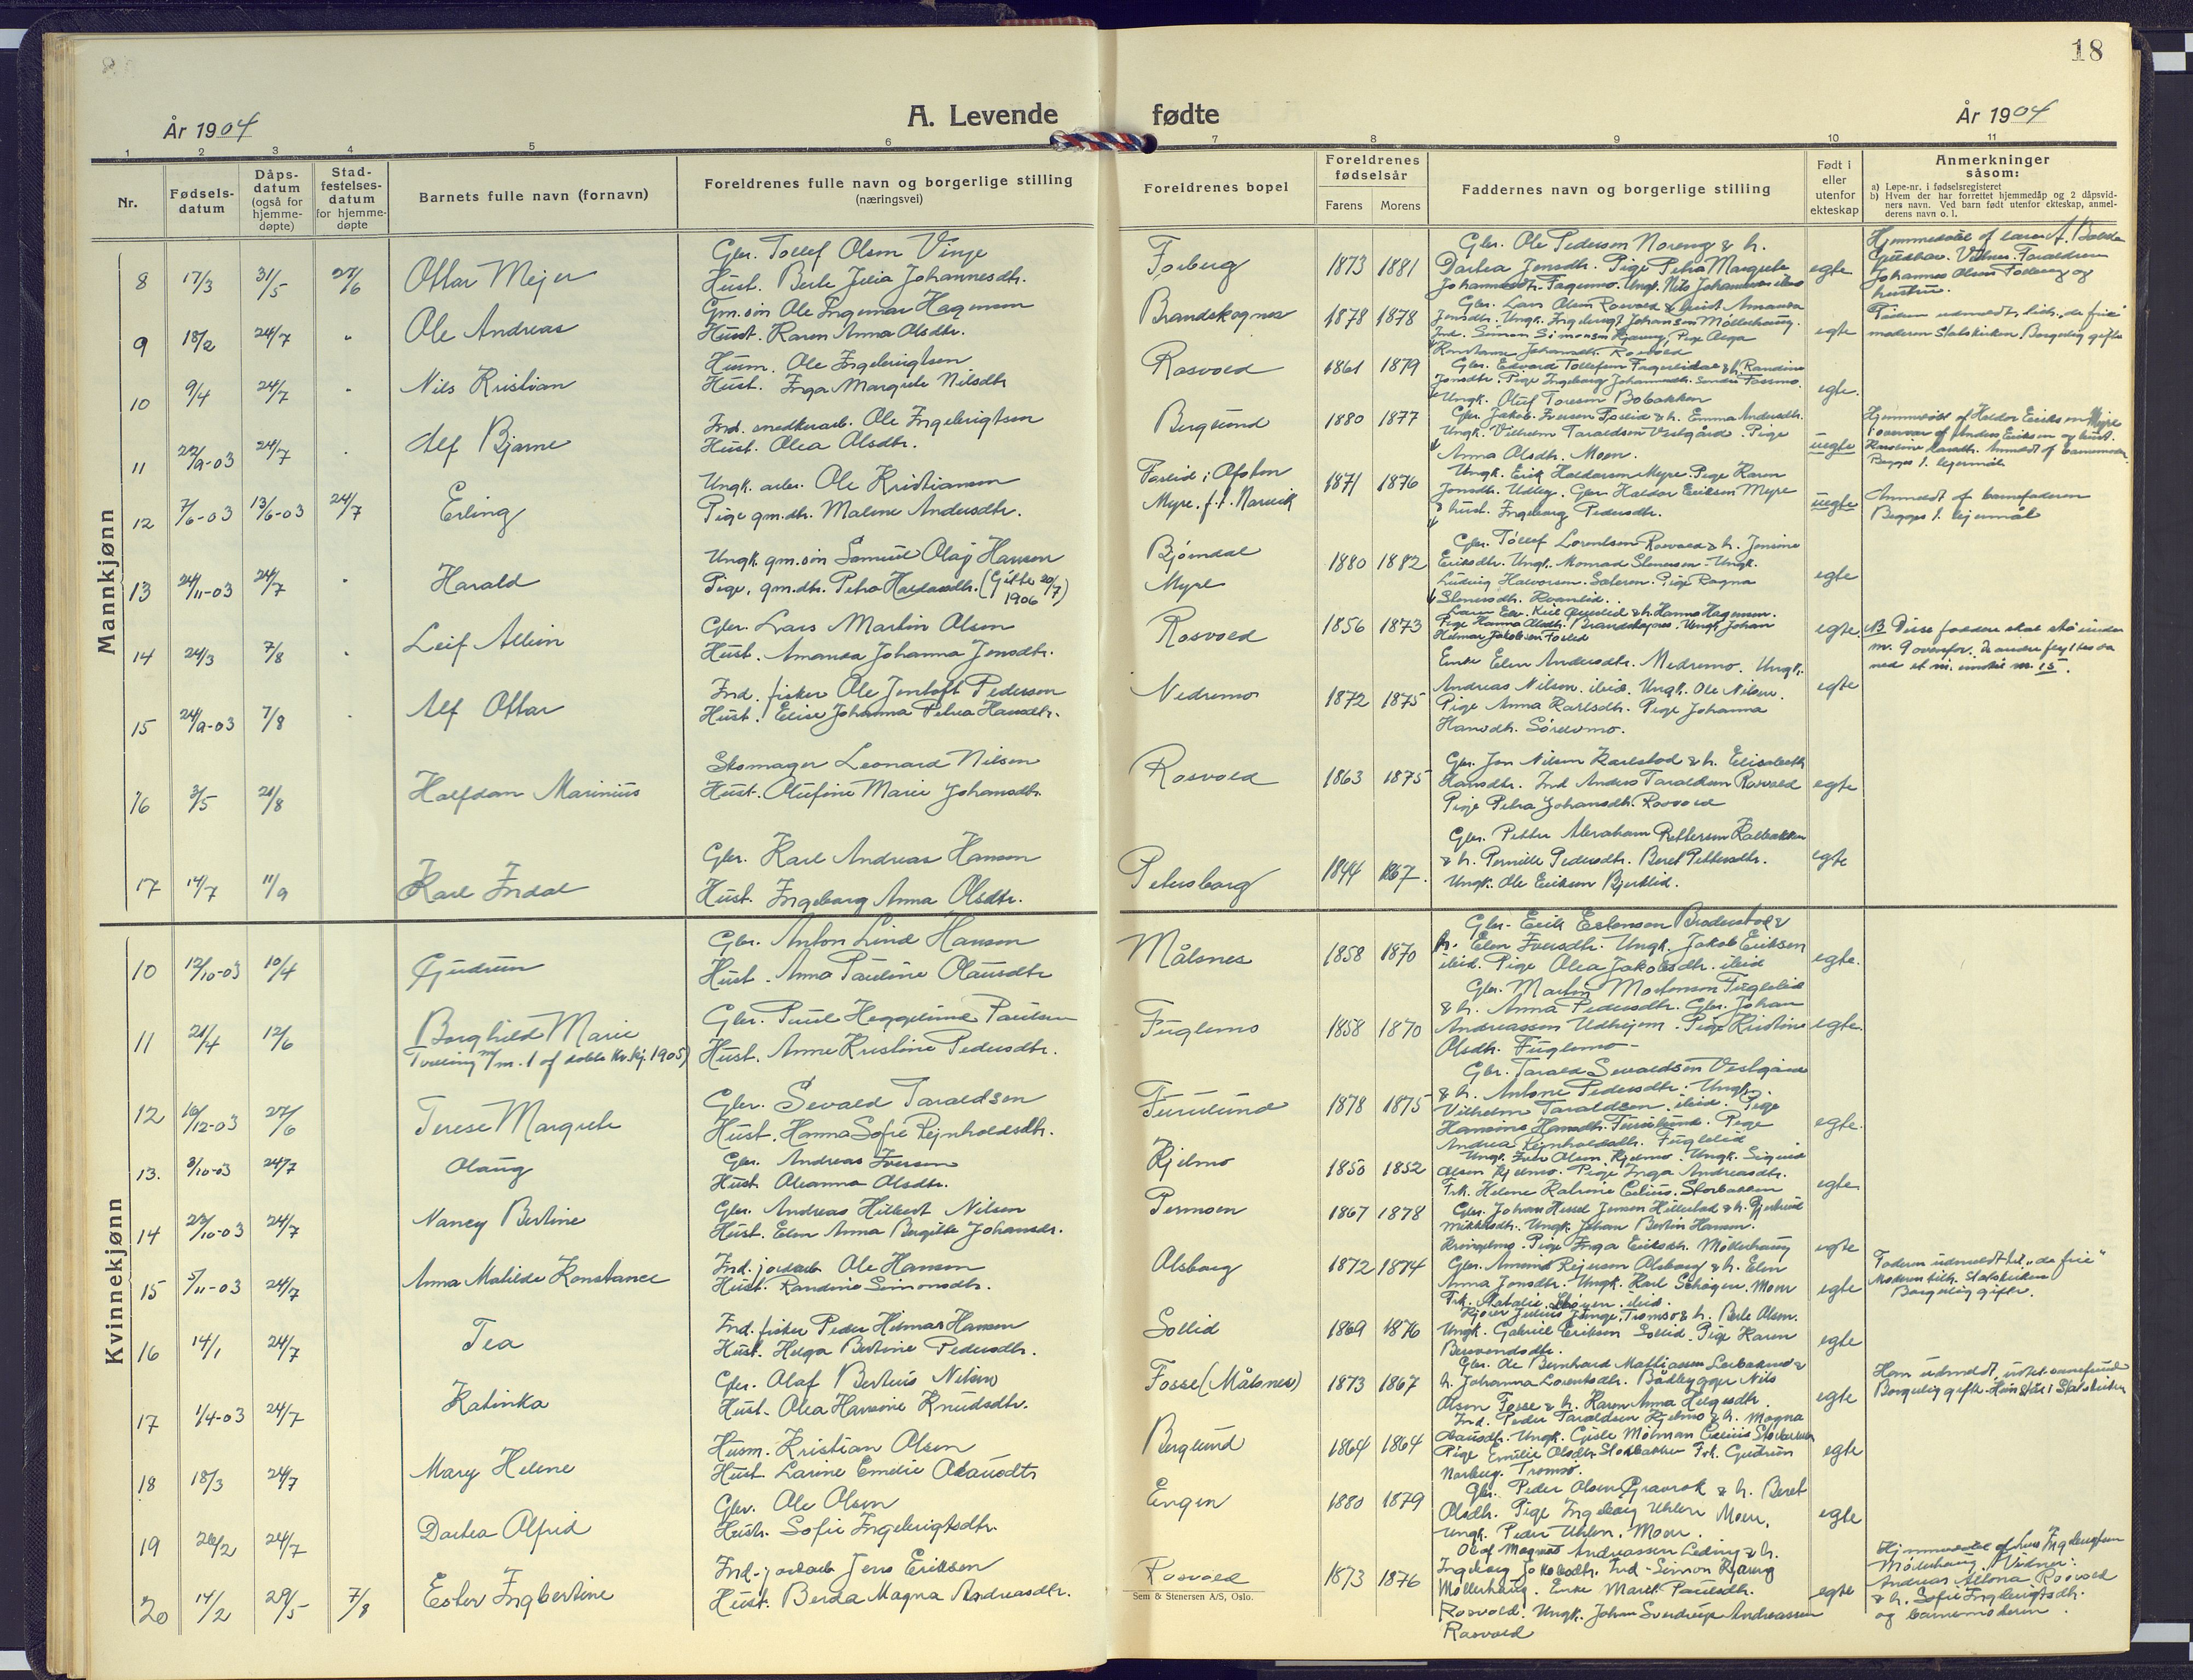 18
År 1904
A. Levende fødte
År 1904
1 2 3 4 5 6 7 8 9 10 11
Nr.
Fødsels-
datum
Dåps-
datum
(også for
hjemme-
døpte)
Stad-
festelses-
datum
for hjemme-
døpte
Barnets fulle navn (fornavn)
Foreldrenes fulle navn og borgerlige stilling
(næringsvei)
Foreldrenes bopel
Foreldrenes
fødselsår
Farens Morens
Faddernes navn og borgerlige stilling
Født i
eller
utenfor
ekteskap
Anmerkninger
såsom:
a) Løpe-nr. i fødselsregisteret
b) Hvem der har forrettet hjemmedåp og 2 dåpsvid-
ners navn. Ved barn født utenfor ekteskap, anmel-
derens navn o. l.
Mannkjønn
8 17/3 31/5 27/6 Ottar Mejer
Gbr. Tollef Olsen Vinje
Hust. Berte Julia Johannesdtr.
Forberg 1873 1881
Gbr. Ole Pedersen Noreng & h.
Dortea Jensdtr. Pige Petra Margrete
egte
9 18/2 24/7 " Ole Andreas
Gm.søn Ole Ingemar Hagensen
Hust. Karen Anna Olsdtr.
Brandskognes 1878 1878
Gbr. Lars Olsen Rosvold & hust. Amanda
Jensdtr. Ungk. Ingebrigt Johansen Møllerhaug.
Ind. Simon Simonsen Kjæreng, Pige Olga
Konstanse Johansdtr. Rosvold
egte
10 9/4 24/7 " Nils Kristian
Husm. Ole Ingebrigtsen
Hust. Inga Margrete Nilsdtr
Rosvold 1861 1879
Jonsdtr. Pige Ingeborg Johannesdtr. Søndre Fossmo.
Ungk. Oluf Toresen Bobakken
egte.
11 22/9-03 24/7 " Alf Bjarne
Ind. snedkerarb. Ole Ingebrigtsen
Hust. Olea Olsdtr.
Berglund 1880 1877
Gbr. Jakob Iversen Foslid & h. Emma Andersdtr.
Ungk. Vilhelm Taraldsen Vestgård. Pige
Anna Olsdtr. Moen.
uegte
12 7/6-03 13/6-03 24/7 Erling
Ungk. arb. Ole Kristiansen
Pige gm.dtr. Malene Andersdtr.
Foslid i Ofoten
Myre. f.t. Narvik 1871 1876
Ungk. Erik Haldorsen Myre. Pige Karen
Jonsdtr. Udby. Gbr Haldor Eriksen Myre
& hust. Ingeborg Pedersdtr.
uegte
Anmeldt af barnefaderen
Begges 1. lejermål
13 24/11-03 24/7 " Harald
Ungk. gm.søn Samuel Olaj Hansen
Pige, gm.dtr. Petra Haldorsdtr. (Gifte 20/7
1906)
Bjørndal
Myre 1880 1882
Gbr. Tollef Lorentsen Rosvold & h. Jensine
Eriksdtr. Ungk. Monrad Stenersen. Ungk.
Ludvig Halvorsen. Sæteren. Pige Ragna
egte
14 24/3 7/8 " Leif Allvin
Gbr. Lars Martin Olsen
Hust. Amanda Johanna Jensdtr.
Rosvold 1856 1873
Pige Hanna Olsdtr. Brandskognes. Ungk. Johan
Hilmar Jakobsen Foslid
egte.
NB Disse faddere skal stå under
nr. 9 ovenfor.
15 24/9-03 7/8 " Alf Ottar
Ind. fisker Ole Jentoft Pedersen
Hust. Elise Johanna Petrea Hansdtr.
Nedremo 1872 1875
Enke Elen Andersdtr. Nedremo. Ungk.
Andreas Nilsen. ibid. Ungk. Ole Nilsen.
Pige Anna Karlsdtr. Pige Johanna
Hansdtr. Sørelvmo.
egte
16 3/5 21/8 Halfdan Marinius
Skomager Leonard Nilsen
Hust. Olufine Marie Johansdtr.
Rosvold 1863 1875
Gbr. Jon Nilsen Karlstad & h. Elisabeth
Hansdtr. Ind Anders Taraldsen Rosvold
Pige Petra Johansdtr. Rosvold
egte
17 14/7 11/9 Karl Indal
Gbr. Karl Andreas Hansen
Hust. Ingeborg Anna Olsdtr.
Petersborg 1844 1867.
Gbr. Petter Abraham Pettersen Kalbakken
& h. Pernille Pedersdtr. Beret Pettersdtr.
Ungk. Ole Eriksen Bjerklid.
egte
Kvinnekjønn
10 12/10-03 10/4 Gudrun
Gbr. Anton Lind Hansen
Hust. Anna Pauline Olausdtr
Målsnes 1858 1870
h. Elen Iversdtr. Ungk. Jakob Eriksen
ibid. Pige Olea Jakobsdtr. ibid
egte.
11 21/4 12/6 Borghild Marie
Tvilling m/nr. 1 af døbte Kv.kj. 1905)
Gbr. Paul Heggelund Paulsen
Hust. Anne Kristine Pedersdtr.
Fuglemo 1858 1870
Gbr. Martin Mortensen Fuglelid
& h. Anna Pedersdtr. Gbr. Johan
Andreassen Udhejem. Pige Kristine
Olsdtr. Fuglemo
egte.
12 16/12-03 27/6 Terese Margrete
Gbr. Sevald Taraldsen
Hust. Hanna Sofie Rejnholdsdtr.
Furulund 1878 1875
Gbr. Tarald Sevaldsen Vestgård
& h. Antone Pedersdtr. Ungk.
Vilhelm Taraldsen. ibid. Pige
Hansine Hansdtr. Furulund. Pige
Andrea Rejnholdsdtr. Fuglelid
egte.
13. 3/10-03 24/7 Olaug
Gbr. Andreas Iversen
Hust. Oleanna Olsdtr.
Kjelmo 1850 1852
Ungk. Iver Olsen Kjelmo. Ungk. Sigurd
Olsen Kjelmo. Pige Inga Andreasdtr.
Frk. Helene Katrine Celius. Storbakken
egte
14 22/10-03 24/7 Nancy Bertine
Gbr. Andreas Hilbert Nilsen
Hust. Elen Anna Bergitte Johansdr.
Permoen 1867 1878
Mikkelsdtr. Ungk. Johan Bertin Hansen.
Kongelmo. Pige Inga Eriksdtr. Møllerhaug
egte
15 5/11-03 24/7 Anna Matilde Konstance
Ind. jordarb Ole Hansen
Hust. Randine Simonsdtr.
Olsborg 1872 1874
Gbr. Amund Rejersen Olsborg & h. Elen
Anna Jonsdtr. Ungk. Karl Schøgen. Moen
egte
Faderen udmeldt til "de frie"
Moderen tilh. Statskirken
Borgerlig gifte.
16 14/1 24/7 Tea
Ind. fisker Peder Hilmar Hansen
Hust. Helga Bertine Pedersdtr.
Sollid 1869 1876
Ungk. Gabriel Eriksen Sollid. Pige Karen
egte
17 1/4-03 24/7 Katinka
Gbr. Olaf Bertius Nilsen
Hust. Olea Hansine Knudsdtr.
Fosse (Målsnes) 1873 1867
h. Johanna Lorentsdtr. Bådbygger Nils
Olsen Fosse & h. Karen Anna Helgesdtr.
egte
18 18/3 24/7 Mary Helene
Husm. Kristian Olsen
Hust. Larine Emelie Olausdtr
Berglund 1864 1864
Ind. Peder Taraldsen Kjelmo & h. Magna
Pige Emilie Olsdtr. Storbakken Frk. Gudrun
Norberg. Tromsø.
egte
19 24/2 24/7 Dortea Alfrid
Gbr. Ole Olsen
Hust. Sofie Ingebrigtsdtr.
Engen 1880 1879
Gbr. Peder Olsen Gravrok & h. Beret
Olsdtr. Pige Ingeborg Uhlen Moen.
Ungk. Peder Uhlen. Moen.
egte
20 14/2 29/5 7/8 Ester Ingbertine
Ind. jordarb Jens Eriksen
Hust. Berda Magna Andreasdtr.
Rosvold 1873 1876
Olaf Magnus Andreassen Leding & h.
Ingeborg Jakobsdtr. Ind. Simon Kjæreng
Møllerhaug. Enke Marit Paulsdtr.
Rosvold. Ungk. Johan Sverdrup Andreassen
Rosvold
egte
Møllerhaug. Vidner:
Andreas Altona Rosvold
& h. Sofie Ingebrigtsdtr.
og barnemoderen.
Sem & Stenersen A/S, Oslo.